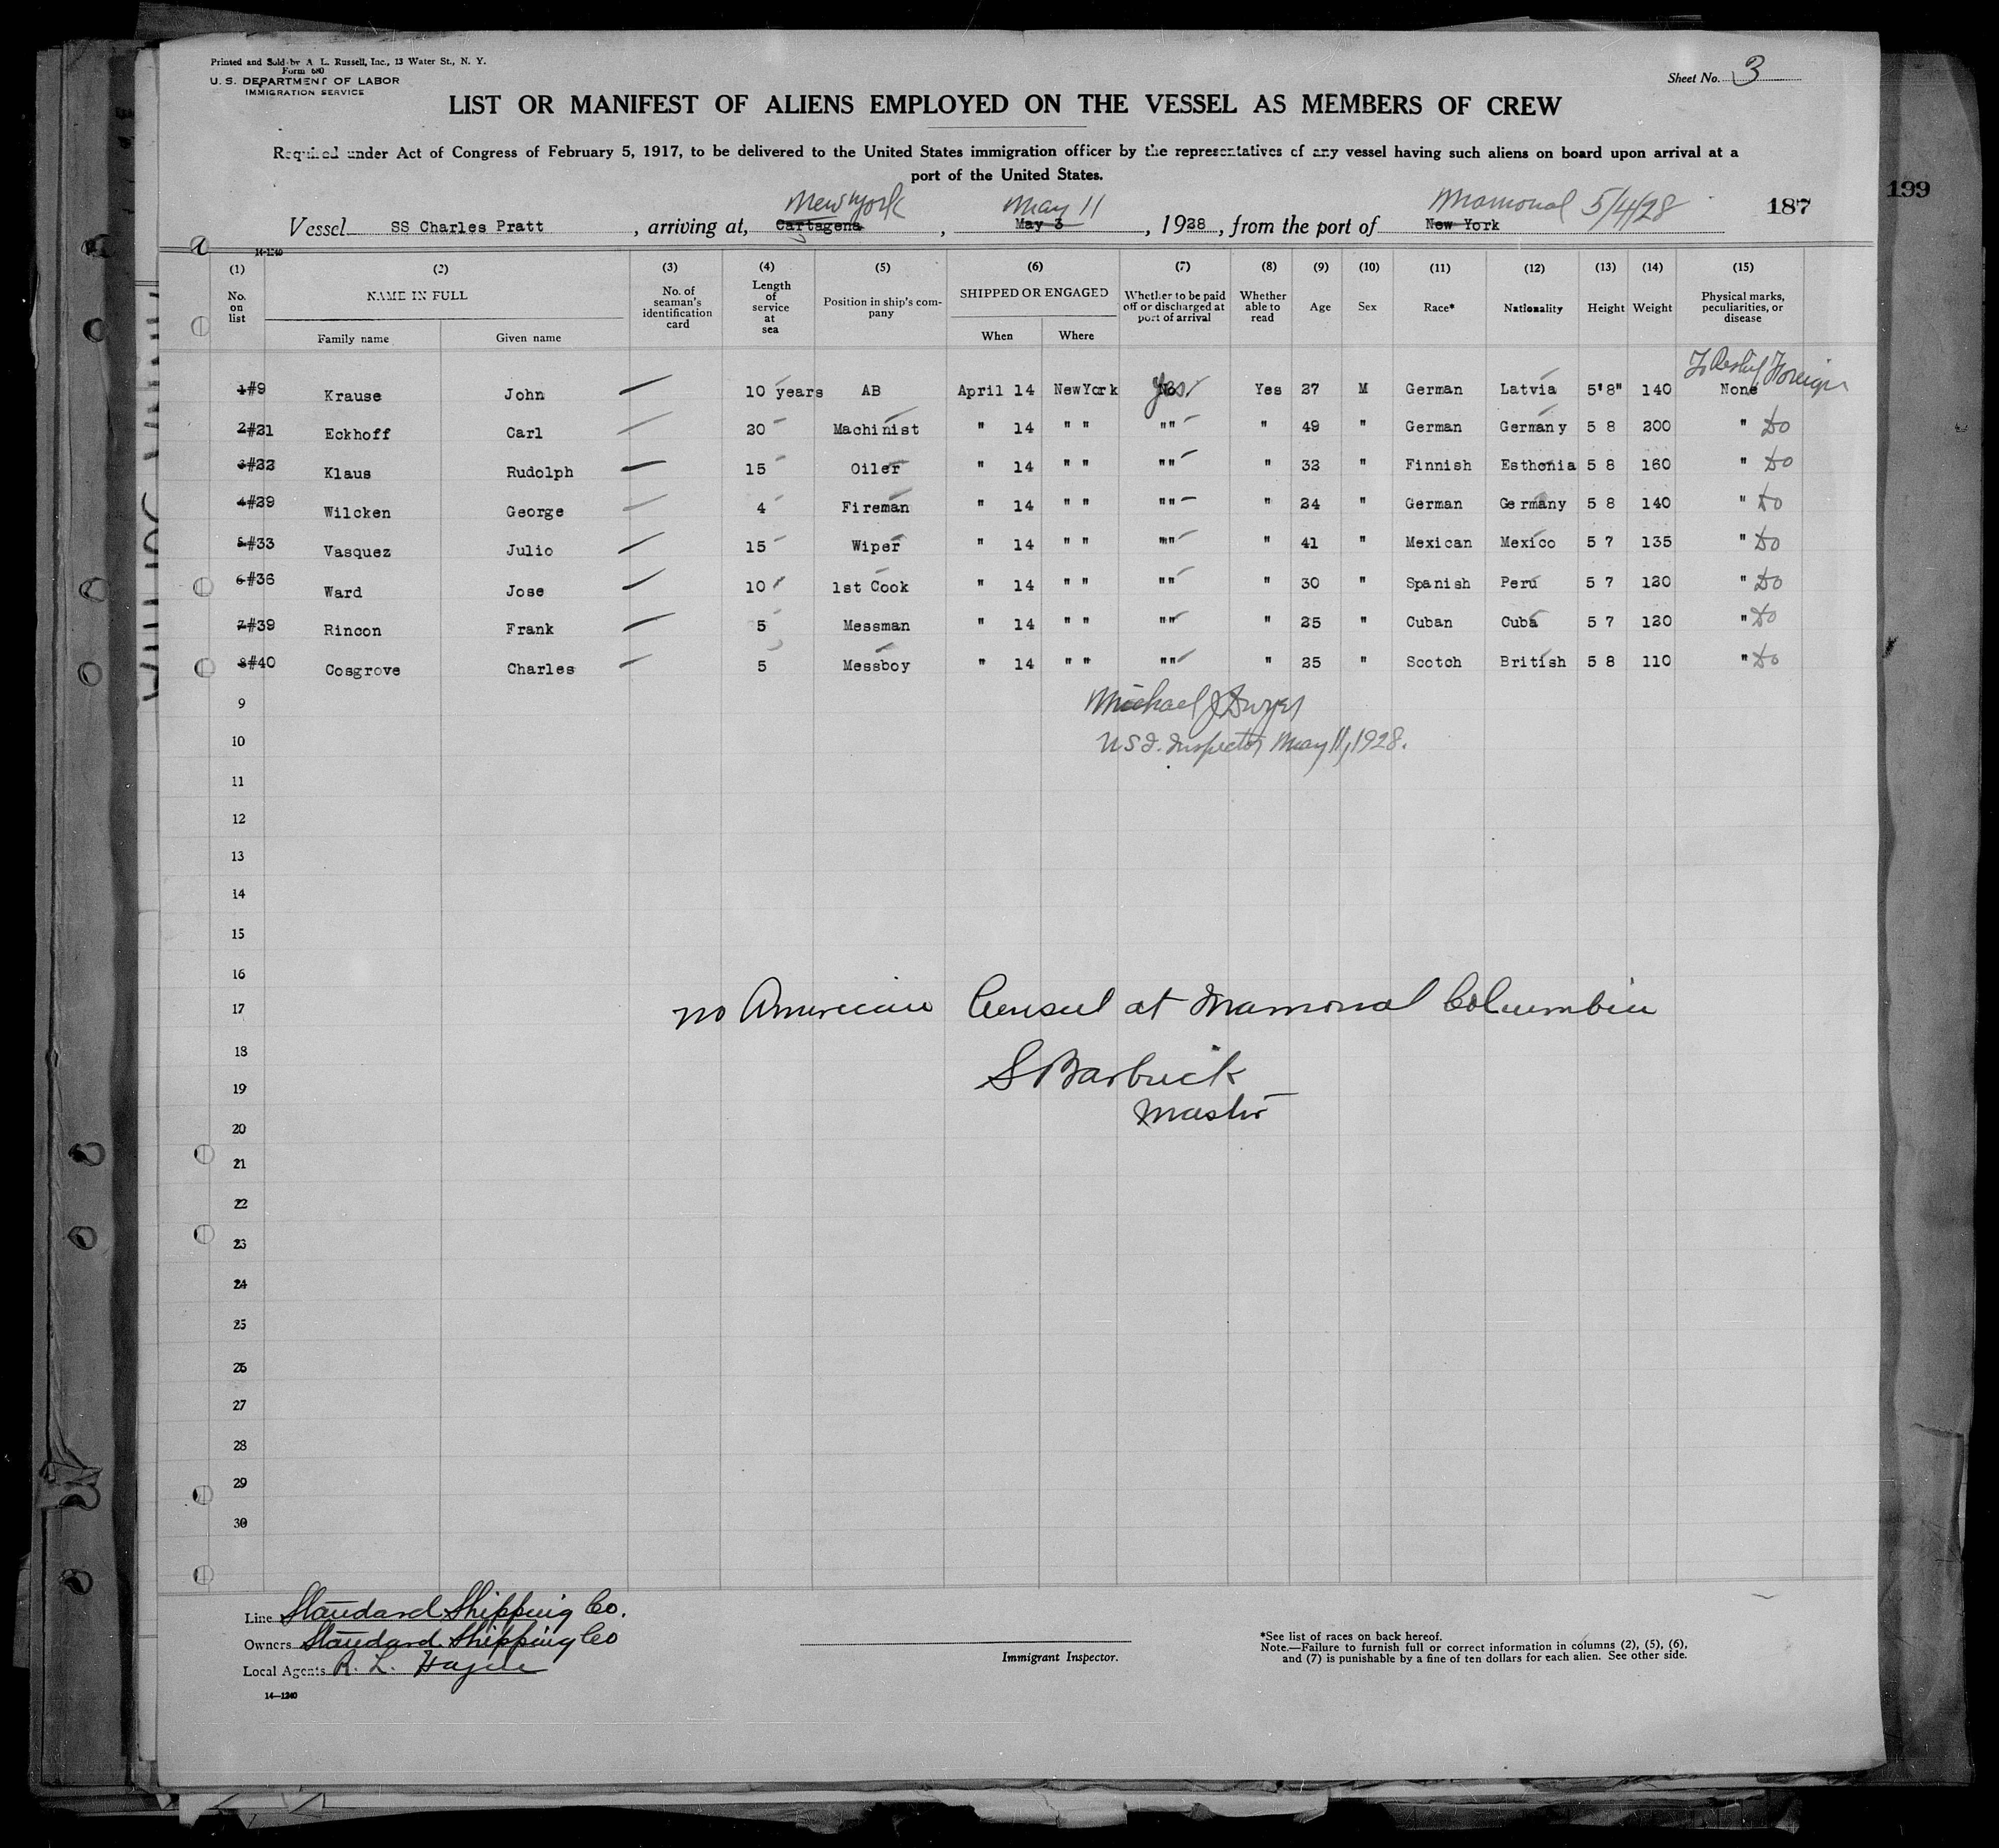 Printed and Sold by A. L. Russell, Inc., 13 Water St., N. Y.
Form 680
U. S. DEPARTMENT OF LABOR
IMMIGRATION SERVICE
Sheet No. 3
LIST OR MANIFEST OF ALIENS EMPLOYED ON THE VESSEL AS MEMBERS OF CREW
Required under Act of Congress of February 5, 1917, to be delivered to the United States immigration officer by the representatives of any vessel having such aliens on board upon arrival at a
port of the United States.
New York May 11 Mamonal 5/4/28 187 199
Vessel SS Charles Pratt, arriving at, Cartagena, May 3, 1928, from the port of New York
14-1240
(1) (2) (3) (4) (5) (6) (7) (8) (9) (10) (11) (12) (13) (14) (15)
No. on list NAME IN FULL Family name Given name No. of seaman's identification card Length of service at sea Position in ship's company SHIPPED OR ENGAGED When Where Whether to be paid off or discharged at port of arrival Whether able to read Age Sex Race* Nationality Height Weight Physical marks, peculiarities, or disease
Foreign
1 #9 Krause John 10 years AB April 14 NewYork Yes Yes 27 M German Latvia 5'8" 140 None
2 #21 Eckhoff Carl 20 Machinist " 14 " " "" " 49 " German Germany 5 8 200 " Do
3 #22 Klaus Rudolph 15 Oiler " 14 " " "" " 32 " Finnish Esthonia 5 8 160 " Do
4 #29 Wilcken George 4 Fireman " 14 " " "" " 24 " German Germany 5 8 140 " Do
5 #33 Vasquez Julio 15 Wiper " 14 " " "" " 41 " Mexican Mexico 5 7 135 " Do
6 #36 Ward Jose 10 1st Cook " 14 " " "" " 30 " Spanish Peru 5 7 120 " Do
7 #39 Rincon Frank 5 Messman " 14 " " "" " 25 " Cuban Cuba 5 7 120 " Do
8 #40 Cosgrove Charles 5 Messboy " 14 " " "" " 25 " Scotch British 5 8 110 " Do
9 Michael J Dwyer
10 U S I. Inspector May 11, 1928.
11
12
13
14
15
16
17 no American Consul at Mamonal Columbia
18
19 S Barbrick
20 Master
21
22
23
24
25
26
27
28
29
30
Line Standard Shipping Co.
Owners Standard Shipping Co
Local Agents R. L. Hague
14—1240
Immigrant Inspector.
*See list of races on back hereof.
Note.—Failure to furnish full or correct information in columns (2), (5), (6),
and (7) is punishable by a fine of ten dollars for each alien. See other side.